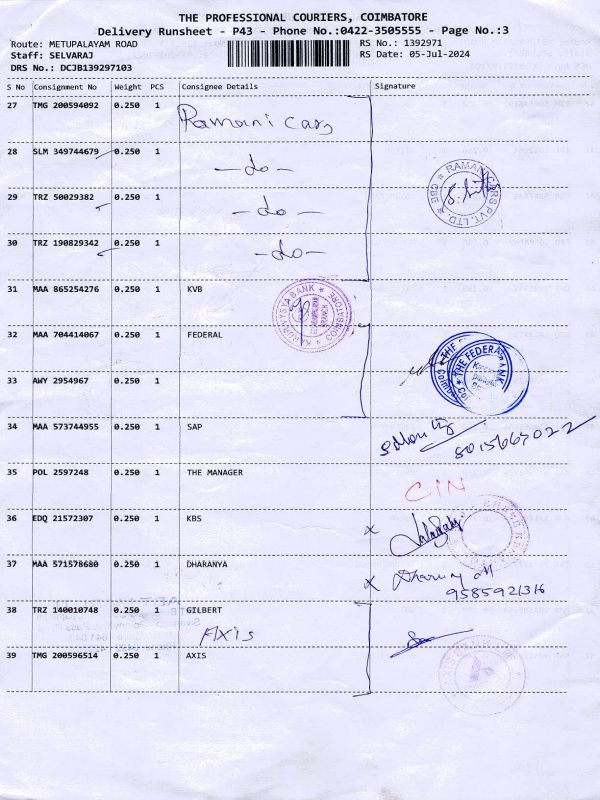 THE PROFESSIONAL COURIERS, COIMBATORE
Delivery Runsheet - P43 - Phone No.:0422-3505555 - Page No.:3
Route: METUPALAYAM ROAD RS No.: 1392971
Staff: SELVARAJ RS Date: 05-Jul-2024
DRS No.: DCJB139297103
S No Consignment No Weight PCS Consignee Details Signature
27 TMG 200594092 0.250 1 Ramani cars
28 SLM 349744679 0.250 1 —do—
29 TRZ 50029382 0.250 1 —do—
30 TRZ 190829342 0.250 1 —do—
RAMANI CARS PVT. LTD. CBE
31 MAA 865254276 0.250 1 KVB
KARUR VYSYA BANK COIMBATORE
32 MAA 704414067 0.250 1 FEDERAL
THE FEDERAL BANK
33 AWY 2954967 0.250 1
34 MAA 573744955 0.250 1 SAP
8015667022
35 POL 2597248 0.250 1 THE MANAGER
CIN
36 EDQ 21572307 0.250 1 KBS
x
37 MAA 571578680 0.250 1 DHARANYA
x 9585921316
38 TRZ 140010748 0.250 1 GILBERT
AXIS
39 TMG 200596514 0.250 1 AXIS